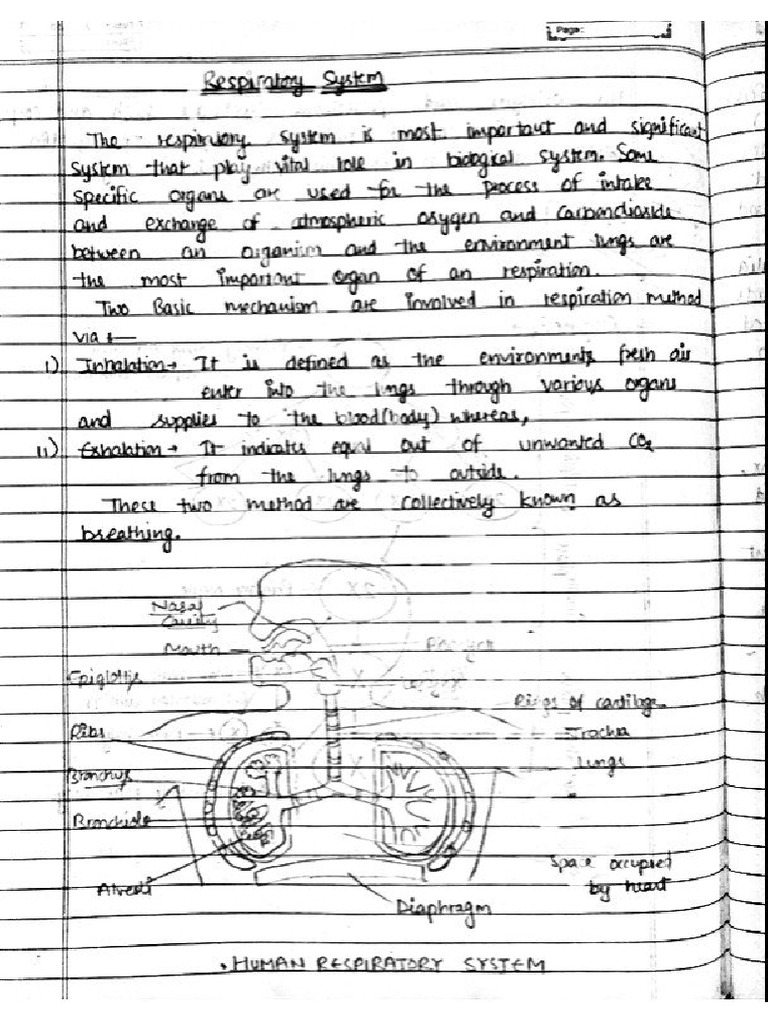 Page:
Respiratory System
The respiratory system is most important and significant
system that play vital role in biological system. Some
specific organs are used for the process of intake
and exchange of atmospheric oxygen and carbondioxide
between an organism and the environment lungs are
the most important organ of an respiration.
Two Basic mechanism are involved in respiration method
via :—
i) Inhalation → It is defined as the environments fresh air
enter into the lungs through various organs
and supplies to the blood (body) whereas,
ii) Exhalation → It indicates equal out of unwanted CO2
from the lungs to outside.
These two method are collectively known as
breathing.
Nasal
Cavity
Mouth
Epiglottis
Larynx
Rings of cartilage
Ribs
Trachea
Lungs
Bronchus
Bronchiole
Space occupied
by heart
Alveoli
Diaphragm
• HUMAN RESPIRATORY SYSTEM